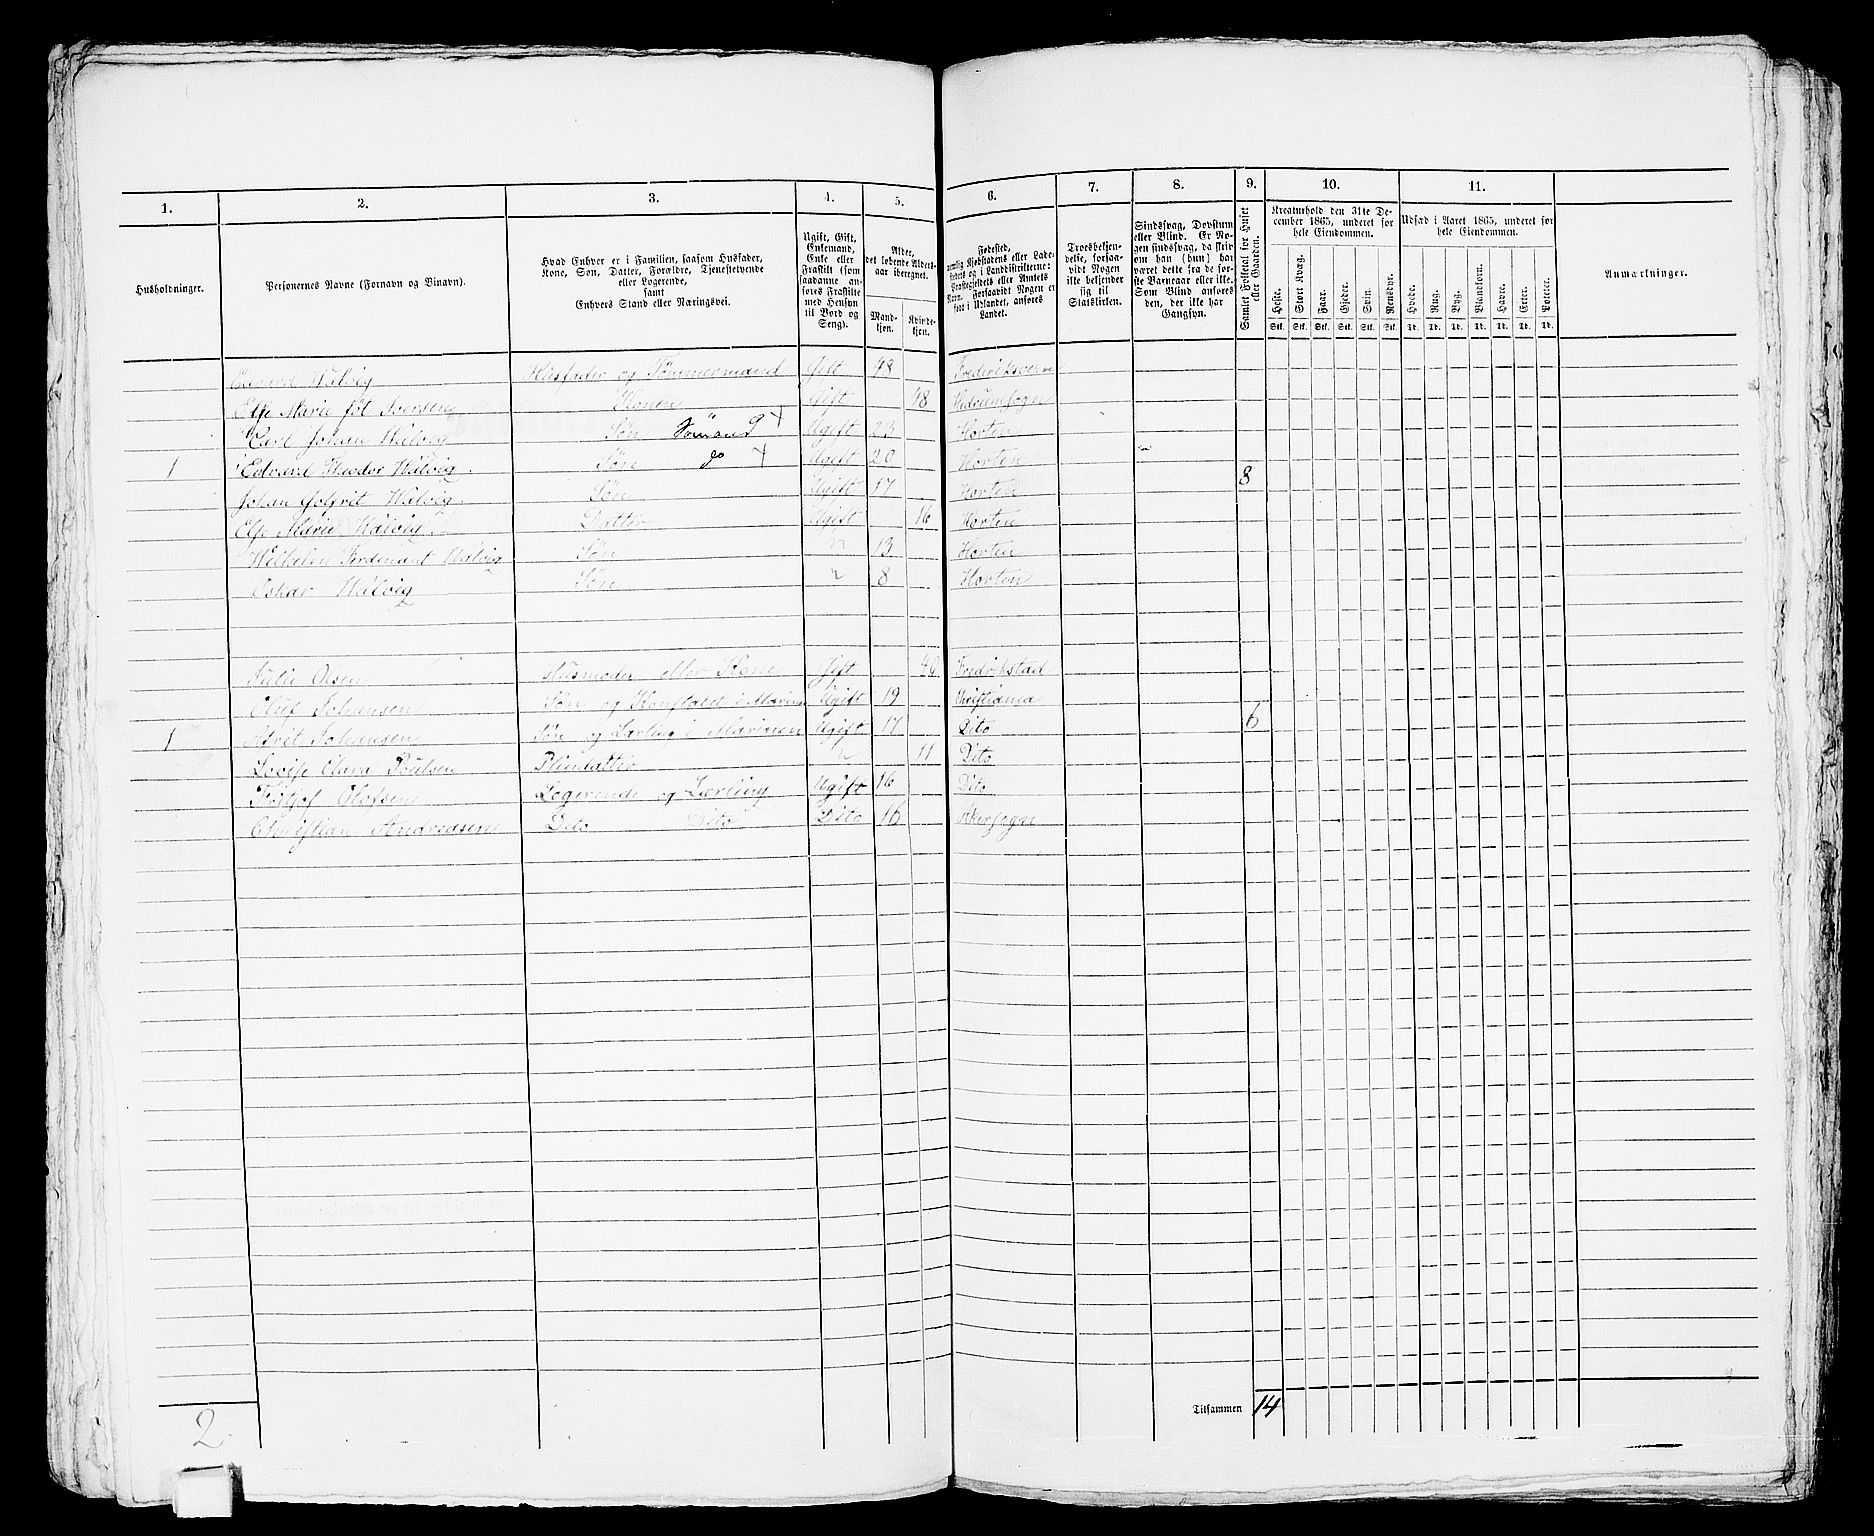 1. 2. 3. 4. 5. 6. 7. 8. 9. 10. 11.
Husholdninger.
Personernes Navne (Fornavn og Binavn).
Hvad Enhver er i Familien, saasom Husfader,
Kone, Søn, Datter, Forældre, Tjenestetyende
eller Logerende,
samt
Enhvers Stand eller Næringsvei.
Ugift, Gift,
Enkemand,
Enke eller
Fraskilt (som
saadanne an-
føres Fraskilte
med Hensyn
til Bord og
Seng).
Alder,
det løbende Alders-
aar iberegnet.
Mand-
kjøn.
Kvinde-
kjøn.
Fødested,
nemlig Kjøbstadens eller Lade-
stedets og i Landdistrikterne:
Præstegjeldets eller Amtets
Navn. Forsaavidt Nogen er
født i Udlandet, anføres
Landet.
Troesbekjen-
delse, forsaa-
vidt Nogen
ikke bekjender
sig til
Statskirken.
Sindssvag, Døvstum
eller Blind. Er No-
gen sindssvag, da skriv
om han (hun) har
været dette fra de før-
ste Barneaar eller ikke.
Som Blind anføres
den, der ikke har
Gangsyn.
Samlet Folketal for Huset
eller Gaarden.
Kreaturhold den 31te De-
cember 1865, underet for
hele Eiendommen.
Heste. Stort Kvæg. Faar. Gjeder. Svin. Rensdyr.
Stk. Stk. Stk. Stk. Stk. Stk.
Udsæd i Aaret 1865, underet for
hele Eiendommen.
Hvede. Rug. Byg. Blandkorn. Havre. Erter. Poteter.
Td. Td. Td. Td. Td. Td. Td.
Anmærkninger.
Edvard Walvig Husfader og Tømmermand Gift 48 Frederiksvern
Else Marie föt Iversen Konen Gift 48 Hedrumsogn
Carl Johan Walvig Søn Sømand + Ugift 23 Horten
1 Edvard Theodor Walvig Søn do + Ugift 20 Horten 8
Johan Golfrit Walvig Søn Ugift 17 Horten
Else Marie Walvig Datter Ugift 16 Horten
Wilhelm Ferdenant Walvig Søn " 13 Horten
Oskar Walvig Søn " 8 Horten
Julie Olsen Husmoder Kone Gift 40 Fredrikstad
Oluf Johansen Søn og Konstabel i Marinen Ugift 19 Christiania
1 Johansen Søn og Lærling i Marinen Ugift 17 Dito 6
Lovise Clara Poulsen Pleiedatter " 11 Dito
Fritjof Olofsen Logerende og Lærling Ugift 16 Dito
Christian Andreasen Dito Dito Dito 16 Akersogn
Tilsammen 14
2